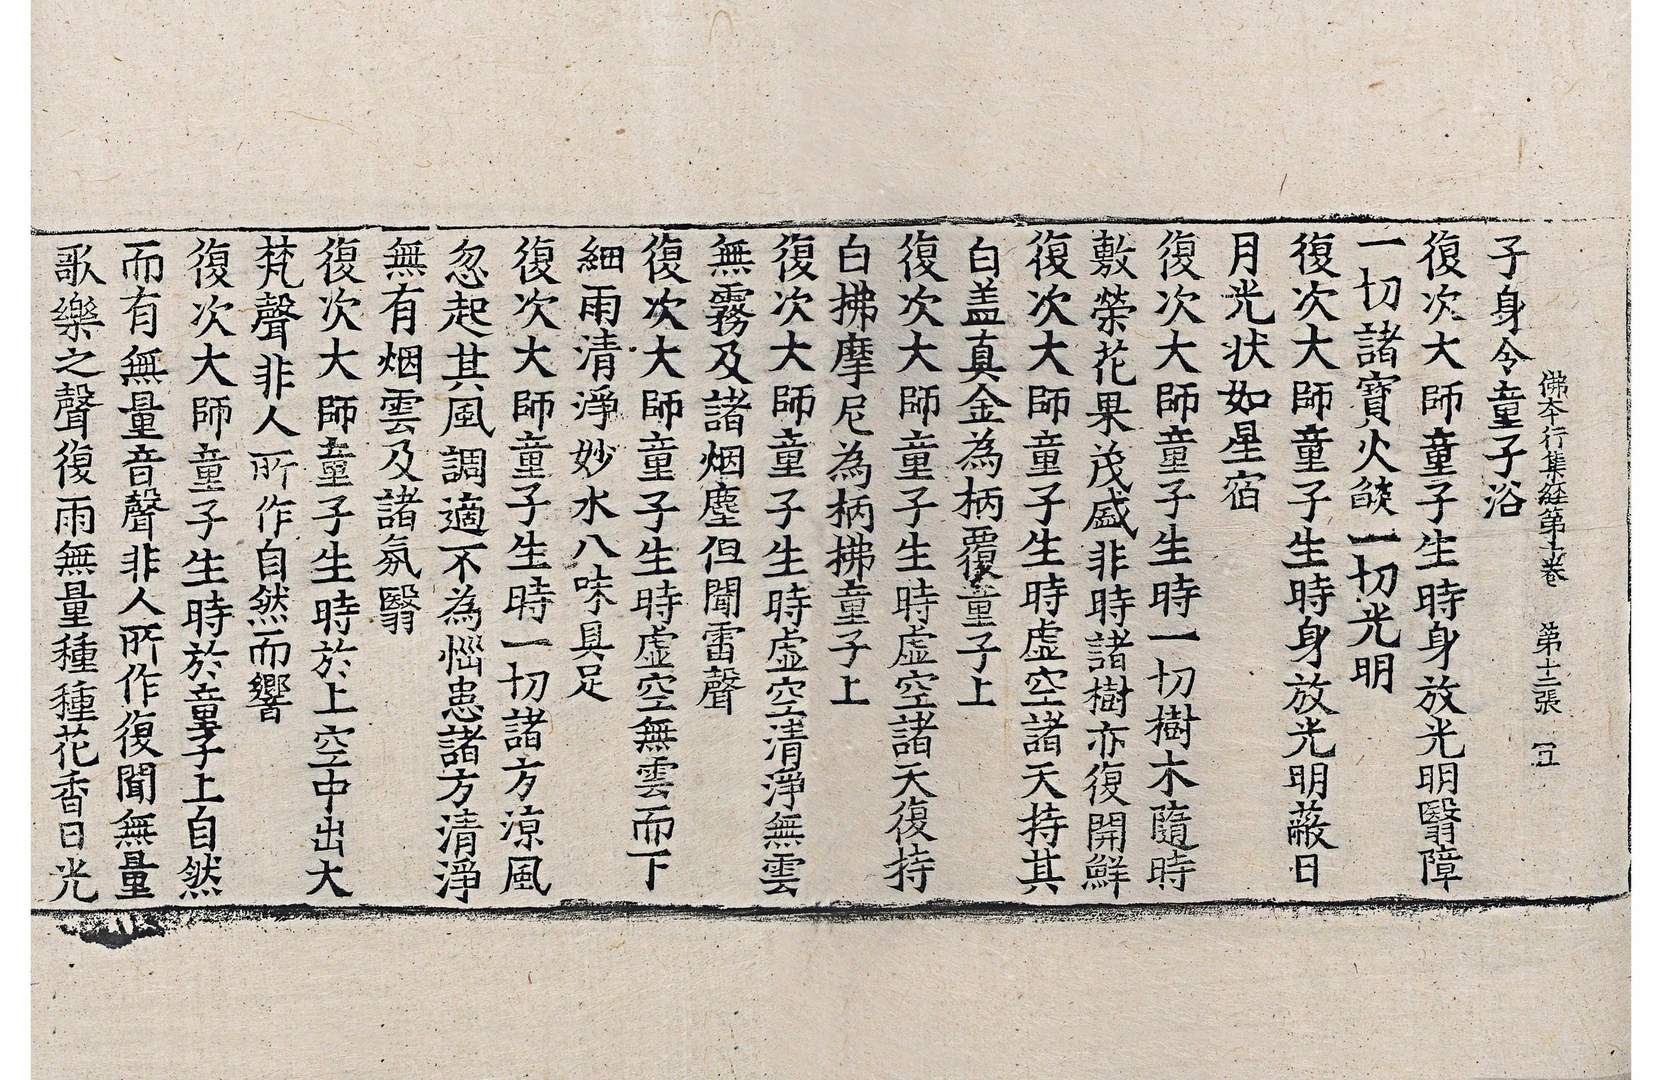 佛本行集經第十卷　第十二張　宜
子身令童子浴
復次大師童子生時身放光明翳障
一切諸寶火燄一切光明
復次大師童子生時身放光明蔽日
月光状如星宿
復次大師童子生時一切樹木隨時
敷榮花果茂盛非時諸樹亦復開鮮
復次大師童子生時虛空諸天持其
白盖真金為柄覆童子上
復次大師童子生時虛空諸天復持
白拂摩尼為柄拂童子上
復次大師童子生時虛空清淨無雲
無霧及諸烟塵但聞雷聲
復次大師童子生時虛空無雲而下
細雨清淨妙水八味具足
復次大師童子生時一切諸方涼風
忽起其風調適不為惱患諸方清淨
無有烟雲及諸氛翳
復次大師童子生時於上空中出大
梵聲非人所作自然而響
復次大師童子生時於童子上自然
而有無量音聲非人所作復聞無量
歌樂之聲復雨無量種種花香日光